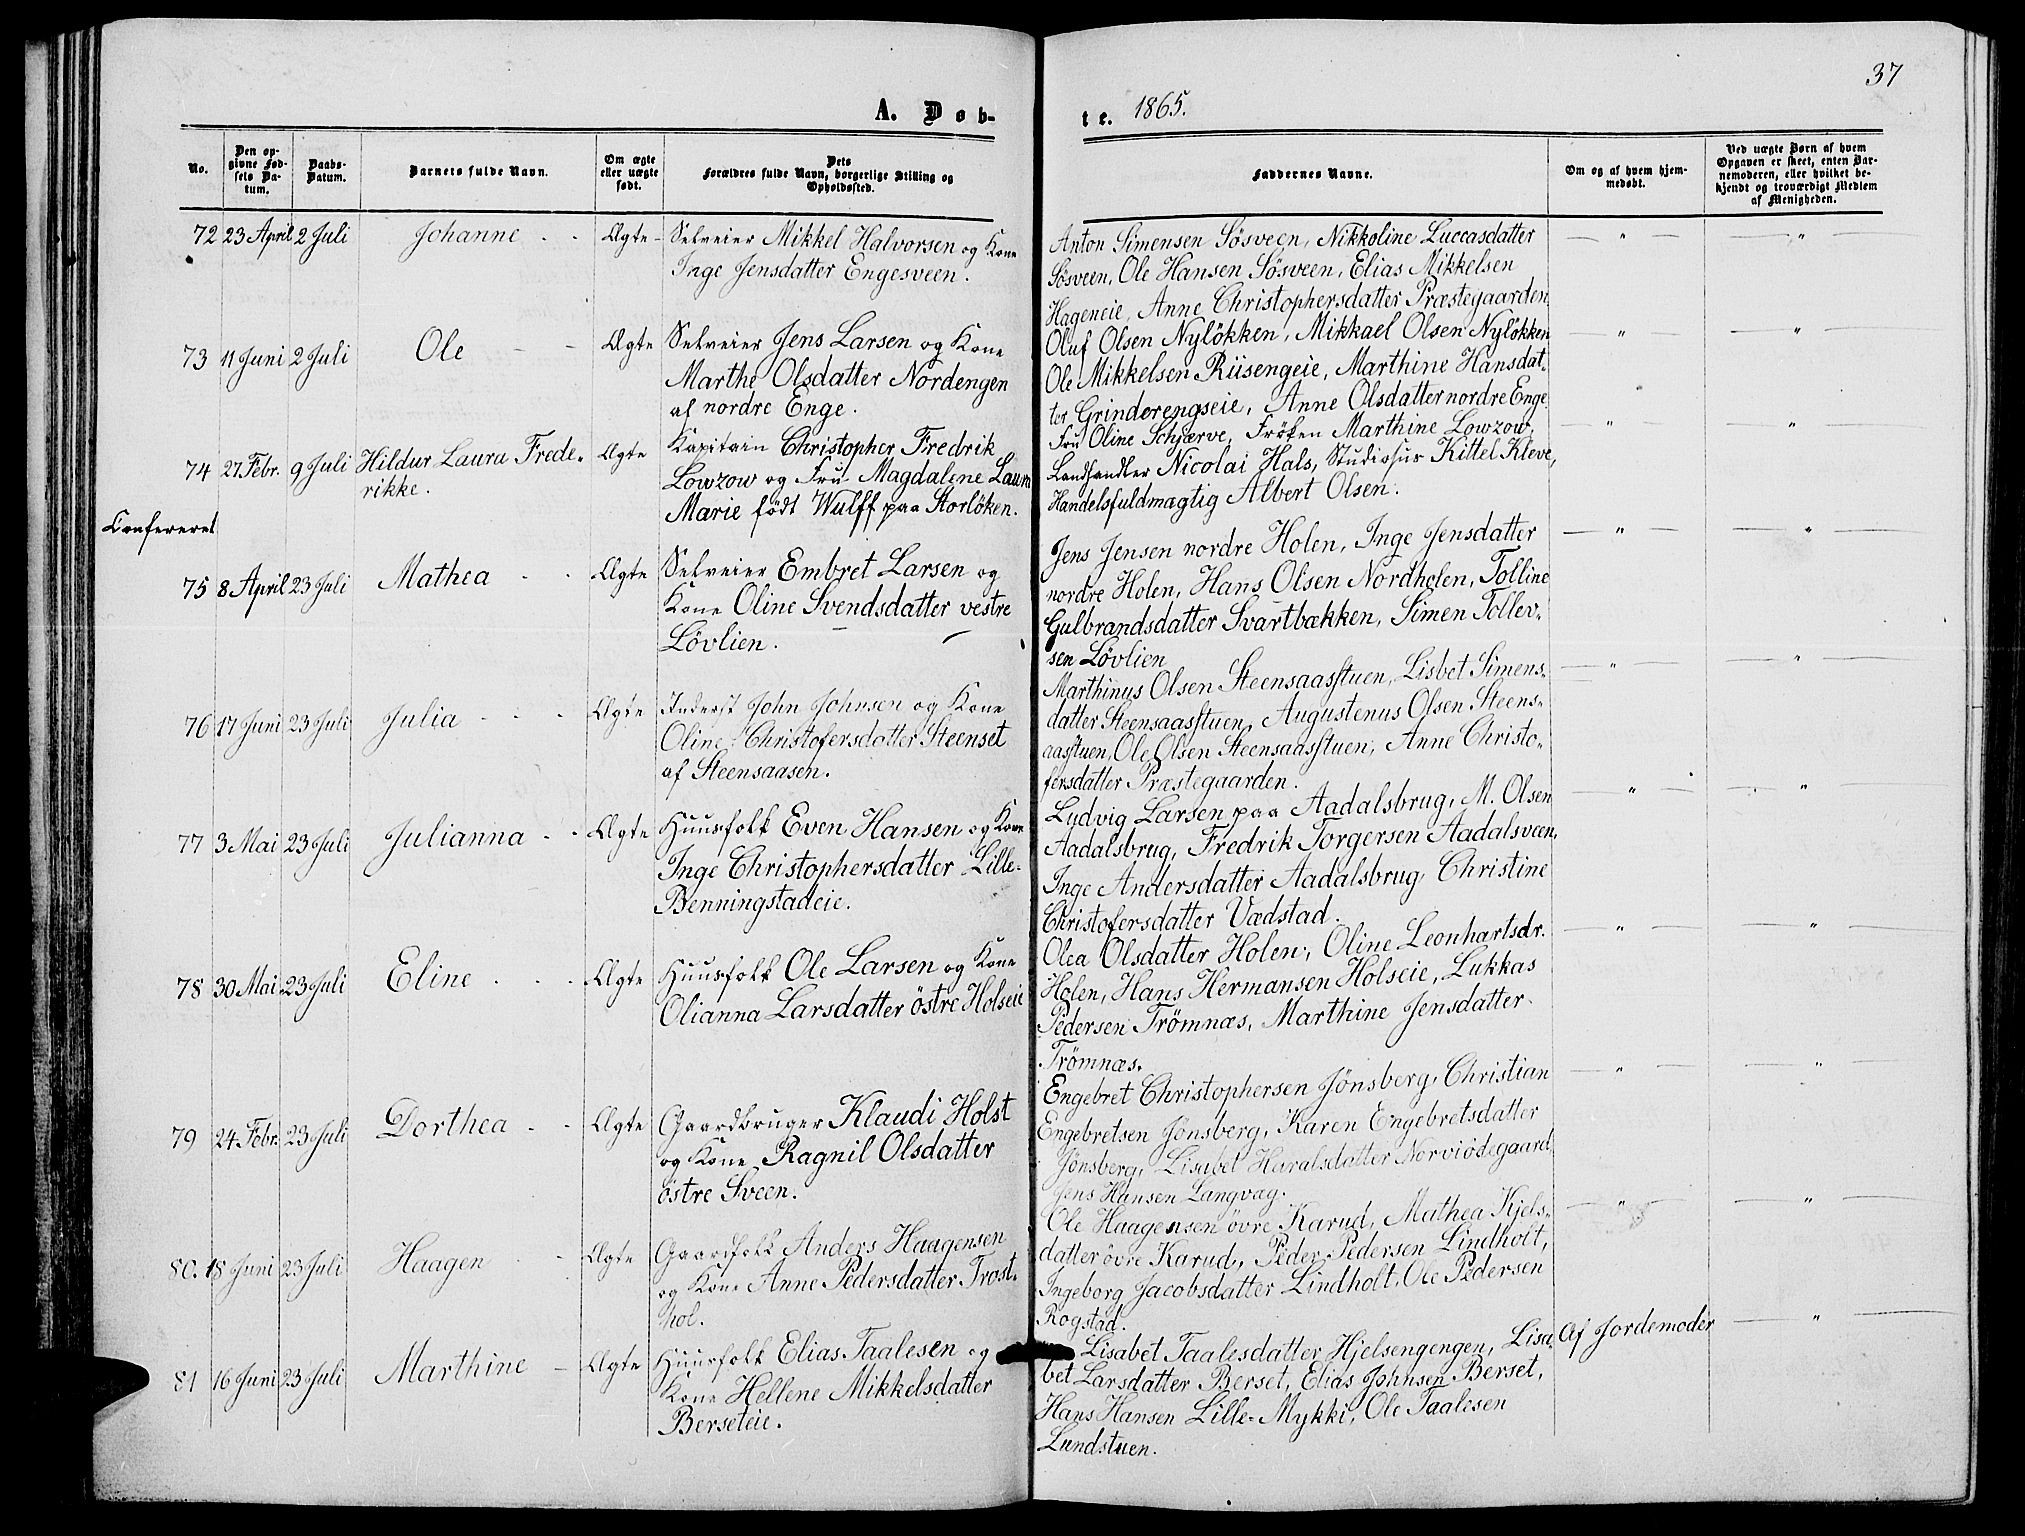 37
A. Døb-
te. 1865.
No.
Den op-
givne Fød-
sels Da-
tum.
Daabs-
Datum.
Barnets fulde Navn.
Om ægte
eller uægte
født.
Dets
Forældres fulde Navn, borgerlige Stilling og
Opholdssted.
Faddernes Navne.
Om og af hvem hjem-
medøbt.
Ved uægte Børn af hvem
Opgaven er skeet, enten Bar-
nemoderen, eller hvilket be-
kjendt og troværdigt Medlem
af Menigheden.
72 23 April 2 Juli Johanne - - Ægte -
Selveier Mikkel Halvorsen og Kone
Inge Jensdatter Engesveen.
Anton Simensen Sösveen, Nikkoline Luccasdatter
Sösveen, Ole Hansen Sösveen, Elias Mikkelsen
Hageneie, Anne Christophersdatter Præstegaarden
— " — — " —
73 11 Juni 2 Juli Ole - - Ægte
Selveier Jens Larsen og Kone
Marthe Olsdatter Nordengen
af nordre Enge.
Oluf Olsen Nylökken, Mikkael Olsen Nylökken
Ole Mikkelsen Riisengeie, Marthine Hansdat-
ter Grinderengseie, Anne Olsdatter nordre Enge.
— " — — " —
74 27 Febr. 9 Juli Hildur Laura Frede-
rikke. Ægte
Kapitain Christopher Fredrik
Lowzow og Fru Magdalene Laura
Marie födt Wulff paa Storlöken.
Fru Oline Schjærve, Fröken Marthine Lowzow,
Landhandler Nicolai Hals, Studiosus Kittel Kleve,
Handelsfuldmægtig Albert Olsen.
— " — — " —
Confereret
75 8 April 23 Juli Mathea - - Ægte
Selveier Embret Larsen og
Kone Oline Svendsdatter vestre
Lövlien.
Jens Jensen nordre Holen, Inge Jensdatter
nordre Holen, Hans Olsen Nordholen, Tolline
Gulbrandsdatter Svartbækken, Simen Tollev-
sen Lövlien
— " — — " —
76 17 Juni 23 Juli Julia - - - Ægte
Inderst John Johnsen og Kone
Oline Christofersdatter Steenset
af Steensaasen.
Marthinus Olsen Steensaasstuen, Lisbet Simens-
datter Steensaasstuen, Augustenus Olsen Steens-
aasstuen, Ole Olsen Steensaasstuen, Anne Christo-
fersdatter Præstegaarden.
— " — — " —
77 3 Mai 23 Juli Julianna - - Ægte
Huusfolk Even Hansen og Kone
Inge Christophersdatter Lille-
Benningstadeie.
Ludvig Larsen paa Aadalsbrug, M. Olsen
Aadalsbrug, Fredrik Torgersen Aadalsveen,
Inge Andersdatter Aadalsbrug, Christine
Christofersdatter Vædstad.
— " — — " —
78 30 Mai 23 Juli Eline - - - Ægte
Huusfolk Ole Larsen og Kone
Olianna Larsdatter östre Holseie
Olea Olsdatter Holen, Oline Leonhartsdr.
Holen, Hans Hermansen Holseie, Lukkas
Pedersen Trömnæs, Marthine Jensdatter
Trömnæs.
— " — — " —
79 24 Febr. 23 Juli Dorthea - - Ægte
Gaardbruger Klaudi Holst
og Kone Ragnil Olsdatter
östre Sveen.
Engebret Christophersen Jönsberg, Christian
Engebretsen Jönsberg, Karen Engebretsdatter
Jönsberg, Lisabet Haralsdatter Norviödegaard,
Jens Hansen Langvag.
— " — — " —
80. 18 Juni 23 Juli Haagen - Ægte
Gaardfolk Anders Haagensen
og Kone Anne Pedersdatter Trost-
hol.
Ole Haagensen övre Karud, Mathea Kjels-
datter övre Karud, Peder Pedersen Lindholt,
Ingeborg Jacobsdatter Lindholt, Ole Pedersen
Rogstad.
— " — — " —
81 16 Juni 23 Juli Marthine - Ægte
Huusfolk Elias Taalesen og
Kone Hellene Mikkelsdatter
Berseteie.
Lisabet Taalesdatter Hjelsengengen, Lisa-
bet Larsdatter Berset, Elias Johnsen Berset,
Hans Hansen Lille-Mykki, Ole Taalesen
Lundstuen.
Af Jordemoder — " —